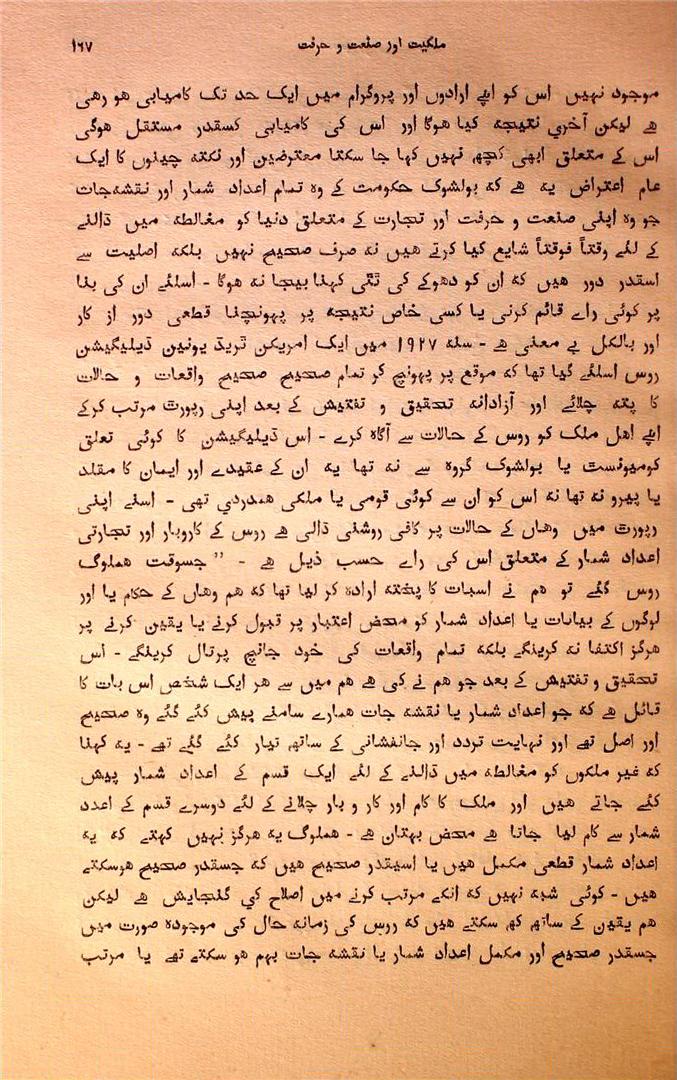 ملکیت اور صنعت و حرفت ۱۶۷
موجود نہیں اس کو اپنے ارادوں اور پروگرام میں ایک حد تک کامیابی ہو رہی
ہے لیکن آخری نتیجہ کیا ہوگا اور اس کی کامیابی کسقدر مستقل ہوگی
اس کے متعلق ابھی کچھ نہیں کہا جا سکتا معترضین اور نکتہ چینوں کا ایک
عام اعتراض یہ ہے کہ بولشوک حکومت کے وہ تمام اعداد شمار اور نقشہ جات
جو وہ اپنی صنعت و حرفت اور تجارت کے متعلق دنیا کو مغالطہ میں ڈالنے
کے لئے وقتاً فوقتاً شایع کیا کرتے ہیں نہ صرف صحیح نہیں بلکہ اصلیت سے
اسقدر دور ہیں کہ ان کو دھوکے کی ٹٹی کہنا بیجا نہ ہوگا - اسلئے ان کی بنا
پر کوئی راے قائم کرنی یا کسی خاص نتیجہ پر پہونچنا قطعی دور از کار
اور بالکل بے معنی ہے - سنہ ۱۹۲۷ میں ایک امریکن ٹریڈ یونین ڈیلیگیشن
روس اسلئے گیا تھا کہ موقع پر پہونچ کر تمام صحیح صحیح واقعات و حالات
کا پتہ چلائے اور آزادانہ تحقیق و تفتیش کے بعد اپنی رپورٹ مرتب کرکے
اپنے اہل ملک کو روس کے حالات سے آگاہ کرے - اس ڈیلیگیشن کا کوئی تعلق
کومیونسٹ یا بولشوک گروہ سے نہ تھا یہ ان کے عقیدے اور ایمان کا مقلد
یا پیرو نہ تھا نہ اس کو ان سے کوئی قومی یا ملکی ہمدردی تھی - اسنے اپنی
رپورٹ میں وہاں کے حالات پر کافی روشنی ڈالی ہے روس کے کاروبار اور تجارتی
اعداد شمار کے متعلق اس کی راے حسب ذیل ہے - " جسوقت ہملوگ
روس گئے تو ہم نے اسبات کا پختہ ارادہ کر لیا تھا کہ ہم وہاں کے حکام یا اور
لوگوں کے بیانات یا اعداد شمار کو محض اعتبار پر قبول کرنے یا یقین کرنے پر
ہرگز اکتفا نہ کرینگے بلکہ تمام واقعات کی خود جانچ پرتال کرینگے - اس
تحقیق و تفتیش کے بعد جو ہم نے کی ہے ہم میں سے ہر ایک شخص اس بات کا
قائل ہے کہ جو اعداد شمار یا نقشہ جات ہمارے سامنے پیش کئے گئے وہ صحیح
اور اصل تھے اور نہایت تردد اور جانفشانی کے ساتھ تیار کئے گئے تھے - یہ کہنا
کہ غیر ملکوں کو مغالطہ میں ڈالنے کے لئے ایک قسم کے اعداد شمار پیش
کئے جاتے ہیں اور ملک کا کام اور کار و بار چلانے کے لئے دوسرے قسم کے اعدد
شمار سے کام لیا جاتا ہے محض بہتان ہے - ہملوگ یہ ہرگز نہیں کہتے کہ یہ
اعداد شمار قطعی مکمل ہیں یا اسیقدر صحیح ہیں کہ جسقدر صحیح ہوسکتے
ہیں - کوئی شبہ نہیں کہ انکے مرتب کرنے میں اصلاح کی گنجایش ہے لیکن
ہم یقین کے ساتھ کہ سکتے ہیں کہ روس کی زمانہ حال کی موجودہ صورت میں
جسقدر صحیح اور مکمل اعداد شمار یا نقشہ جات بہم ہو سکتے تھے یا مرتب